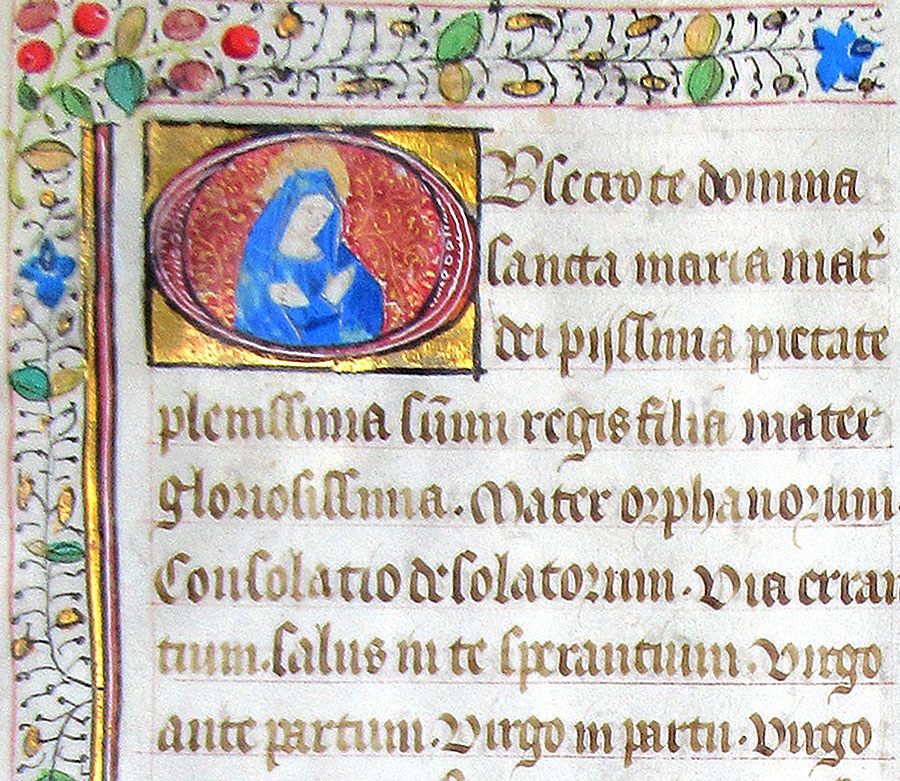 OBsecro te domina
sancta maria mat̉
dei pijssima pietate
plenissima sūmi regis filia mater
gloriosissima. Mater orphanorum.
Consolatio desolatorum. Via erran
tium. salus in te sperantium. Virgo
ante partum. Virgo in partu. Virgo